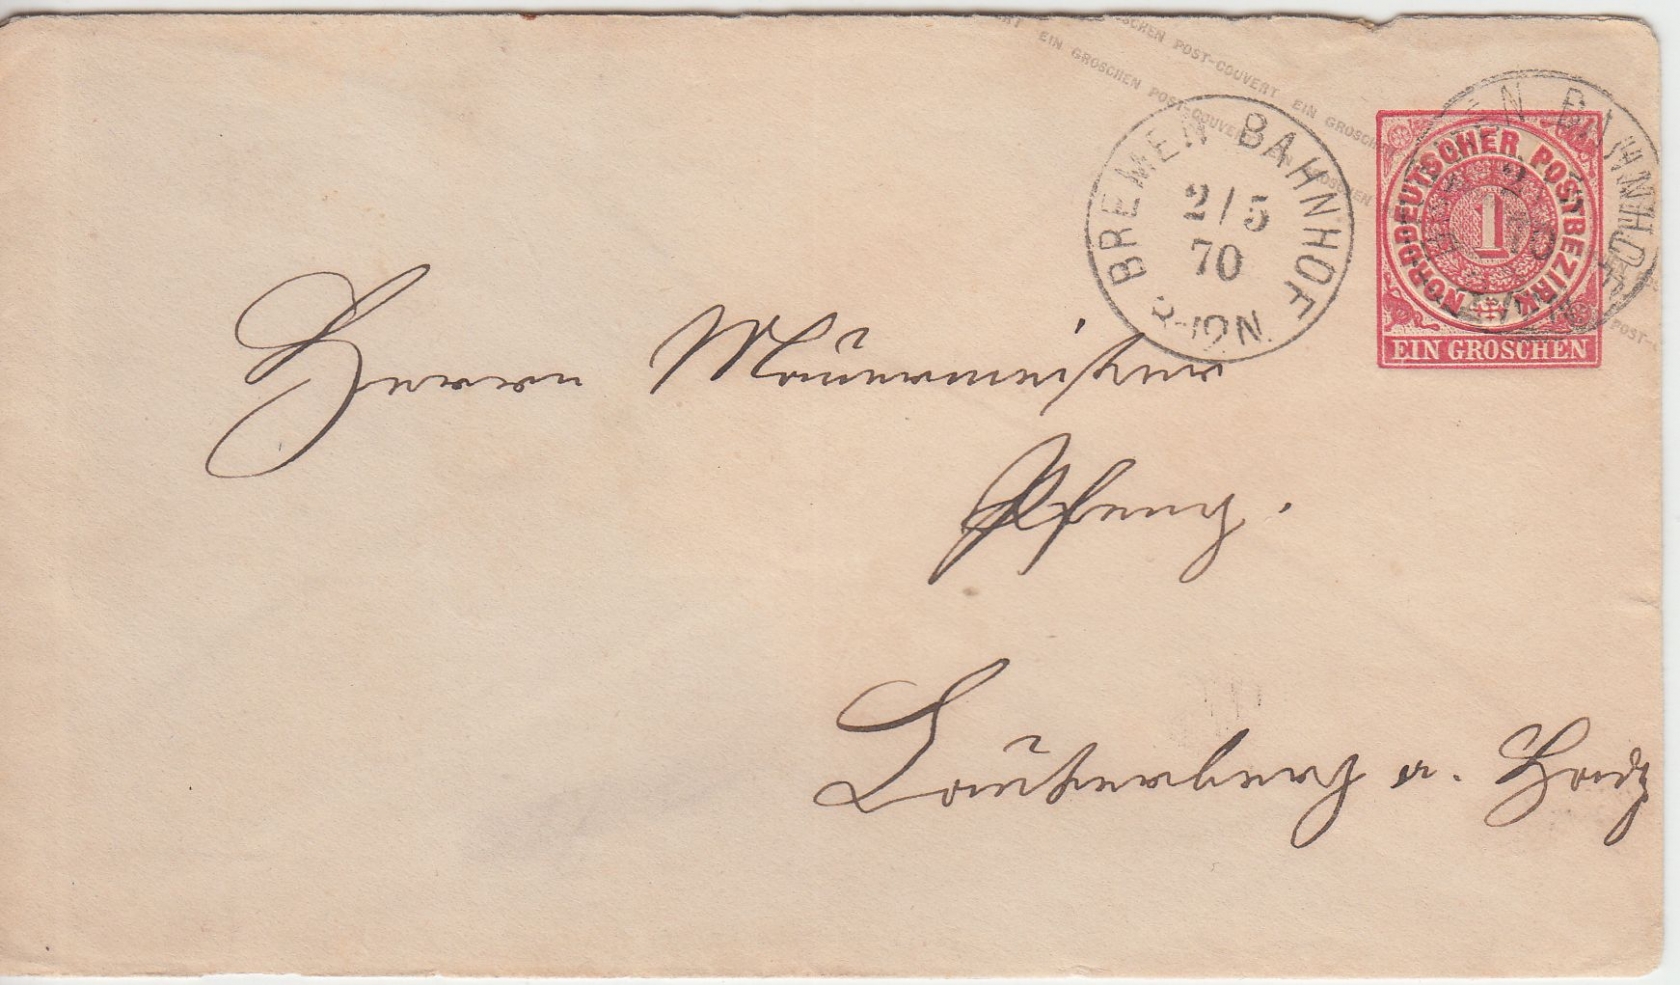 EIN GROSCHEN POST-COUVERT EIN GROSCHEN
EIN GROSCHEN POST-COUVERT EIN GROSCHEN
BREMEN BAHNHOF
2/5
70
NORDDEUTSCHER POSTBEZIRK
1
EIN GROSCHEN
POST-
Herrn Mauermeister
Lauterberg a. Harz